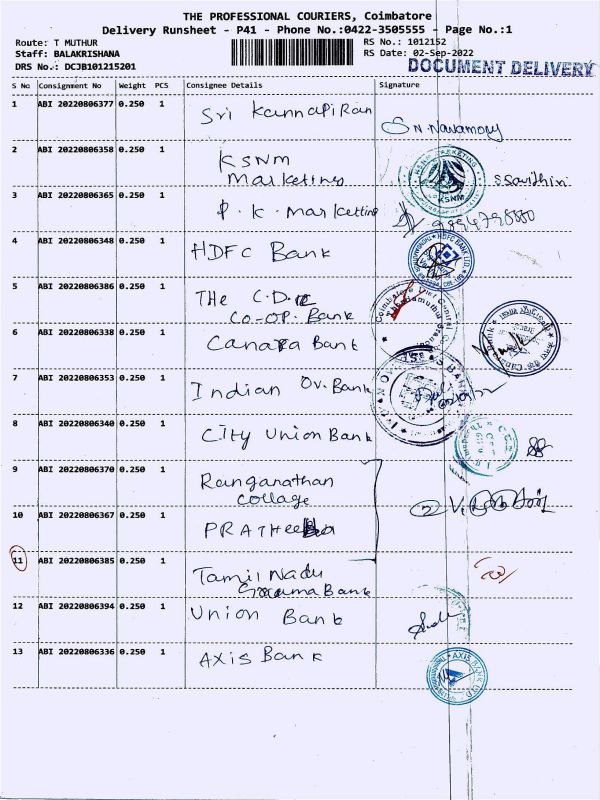 THE PROFESSIONAL COURIERS, Coimbatore
Delivery Runsheet - P41 - Phone No.:0422-3505555 - Page No.:1
Route: T MUTHUR
RS No.: 1012152
Staff: BALAKRISHANA
RS Date: 02-Sep-2022
DRS No.: DCJB101215201
DOCUMENT DELIVERY
S No Consignment No Weight PCS Consignee Details Signature
1 ABI 20220806377 0.250 1 Sri Kannapiran
S N. Navamony
2 ABI 20220806358 0.250 1 KSNM
Marketing
KSNM
3 ABI 20220806365 0.250 1 P. K. Marketing
4 ABI 20220806348 0.250 1 HDFC Bank
HDFC BANK LTD
5 ABI 20220806386 0.250 1 THE C.D.
CO-OP. Bank
6 ABI 20220806338 0.250 1 CanaRa Bank
7 ABI 20220806353 0.250 1 Indian Ov. Bank
8 ABI 20220806340 0.250 1 City Union Bank
9 ABI 20220806370 0.250 1 Ranganathan
Collage
10 ABI 20220806367 0.250 1
11 ABI 20220806385 0.250 1 Tamil Nadu
Bank
12 ABI 20220806394 0.250 1 Union Bank
13 ABI 20220806336 0.250 1 AXIS Bank
AXIS BANK LTD